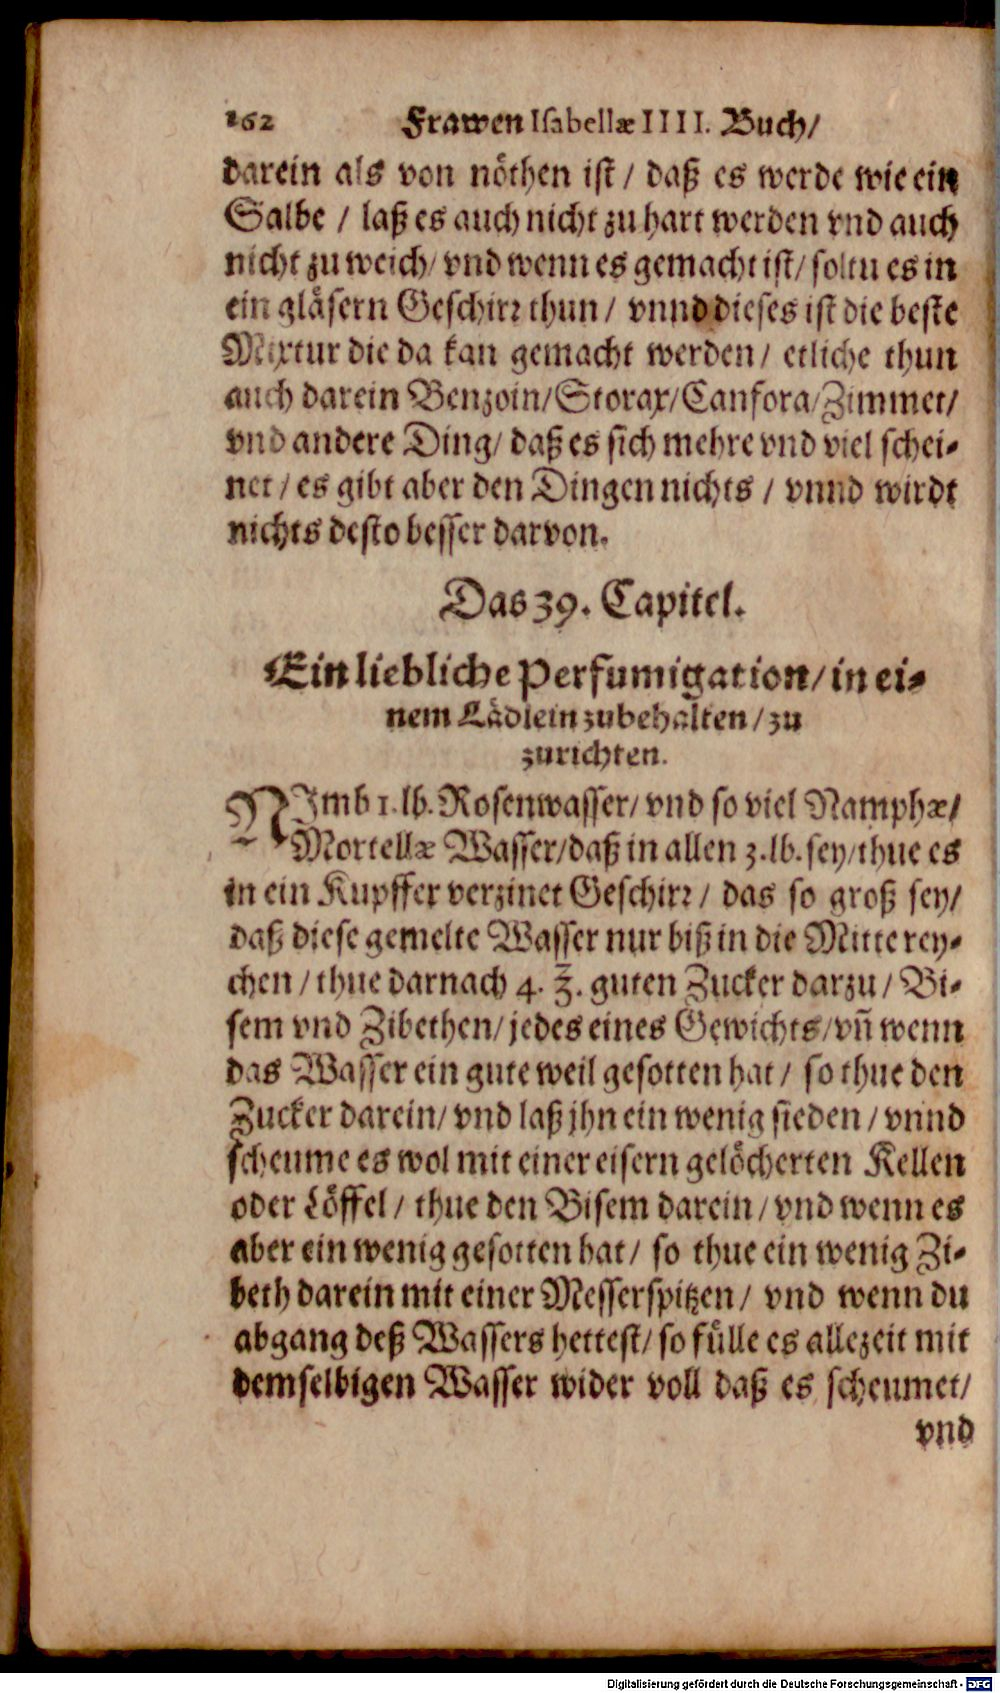 162 Frawen Isabellæ IIII. Buch/
darein als von nöthen ist / daß es werde wie ein
Salbe / laß es auch nicht zu hart werden vnd auch
nicht zu weich/ vnd wenn es gemacht ist/ soltu es in
ein gläsern Geschirr thun / vnnd dieses ist die beste
Mixtur die da kan gemacht werden / etliche thun
auch darein Benzoin/Storax/Canfora/Zimmet/
vnd andere Ding/ daß es sich mehre vnd viel schei-
net / es gibt aber den Dingen nichts / vnnd wirdt
nichts desto besser darvon.
Das 39. Capitel.
Ein liebliche Perfumigation/ in ei-
nem Lädlein zubehalten / zu
zurichten.
NImb 1. lb. Rosenwasser/ vnd so viel Namphæ/
Mortellæ Wasser/daß in allen 3. lb. sey/thue es
in ein Kupffer verzinet Geschirr / das so groß sey/
daß diese gemelte Wasser nur biß in die Mitte rey-
chen / thue darnach 4. ℥. guten Zucker darzu / Bi-
sem vnd Zibethen/ jedes eines Gewichts/vñ wenn
das Wasser ein gute weil gesotten hat / so thue den
Zucker darein/ vnd laß jhn ein wenig sieden / vnnd
scheume es wol mit einer eisern gelöcherten Kellen
oder Löffel / thue den Bisem darein / vnd wenn es
aber ein wenig gesotten hat / so thue ein wenig Zi-
beth darein mit einer Messerspitzen / vnd wenn du
abgang deß Wassers hettest/ so fülle es allezeit mit
demselbigen Wasser wider voll daß es scheumet/
vnd
Digitalisierung gefördert durch die Deutsche Forschungsgemeinschaft - DFG